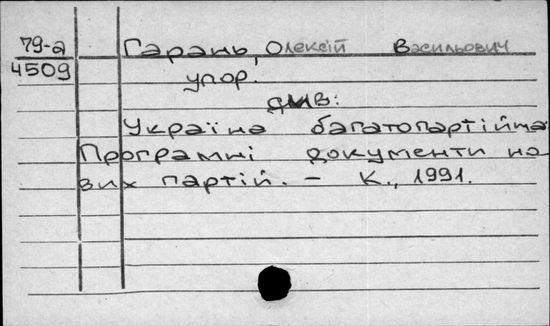 79-а Гарань, Олексій Васильович
4509 упор.
див:
Україна багатопартійна
Програмні документи но
вих партій. – К., 1991.